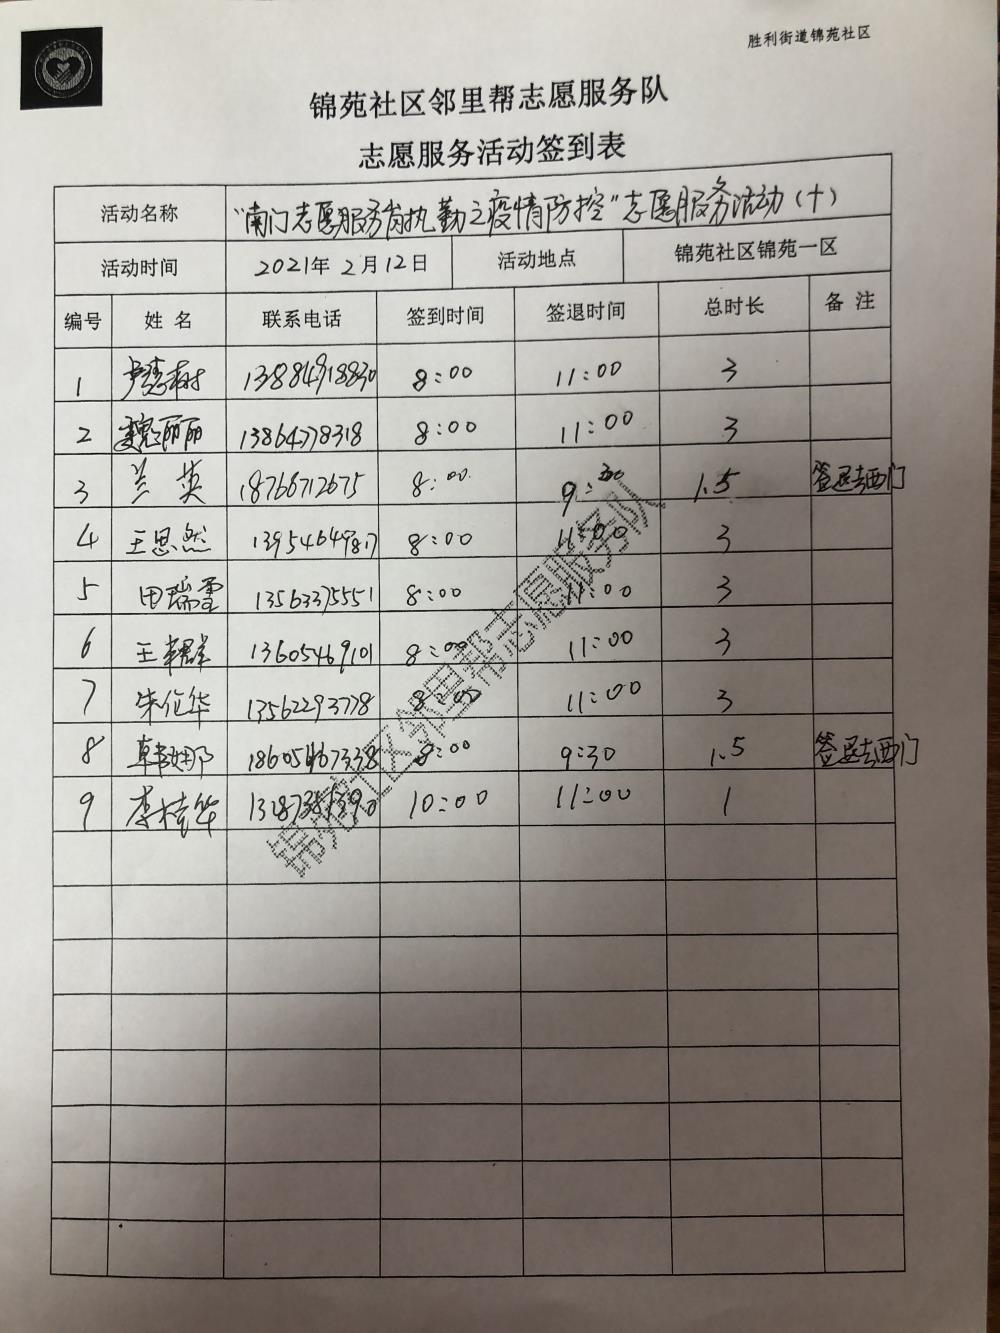 胜利街道锦苑社区
锦苑社区邻里帮志愿服务队
志愿服务活动签到表
活动名称 "南门志愿服务岗执勤之疫情防控"志愿服务活动(十)
活动时间 2021年 2月12日 活动地点 锦苑社区锦苑一区
编号 姓名 联系电话 签到时间 签退时间 总时长 备注
1 卢慧树 13884918830 8:00 11:00 3
2 魏丽丽 13864778318 8:00 11:00 3
3 兰英 18766712675 8:00 9:30 1.5 签退去西门
4 王思然 13954649817 8:00 11:00 3
5 田瑞雪 13563375551 8:00 11:00 3
6 王群 13605469101 8:00 11:00 3
7 朱伦华 13562293778 8:00 11:00 3
8 韩娜 18605467338 8:00 9:30 1.5 签退去西门
9 李桂华 10:00 11:00 1
锦苑社区邻里帮志愿服务队